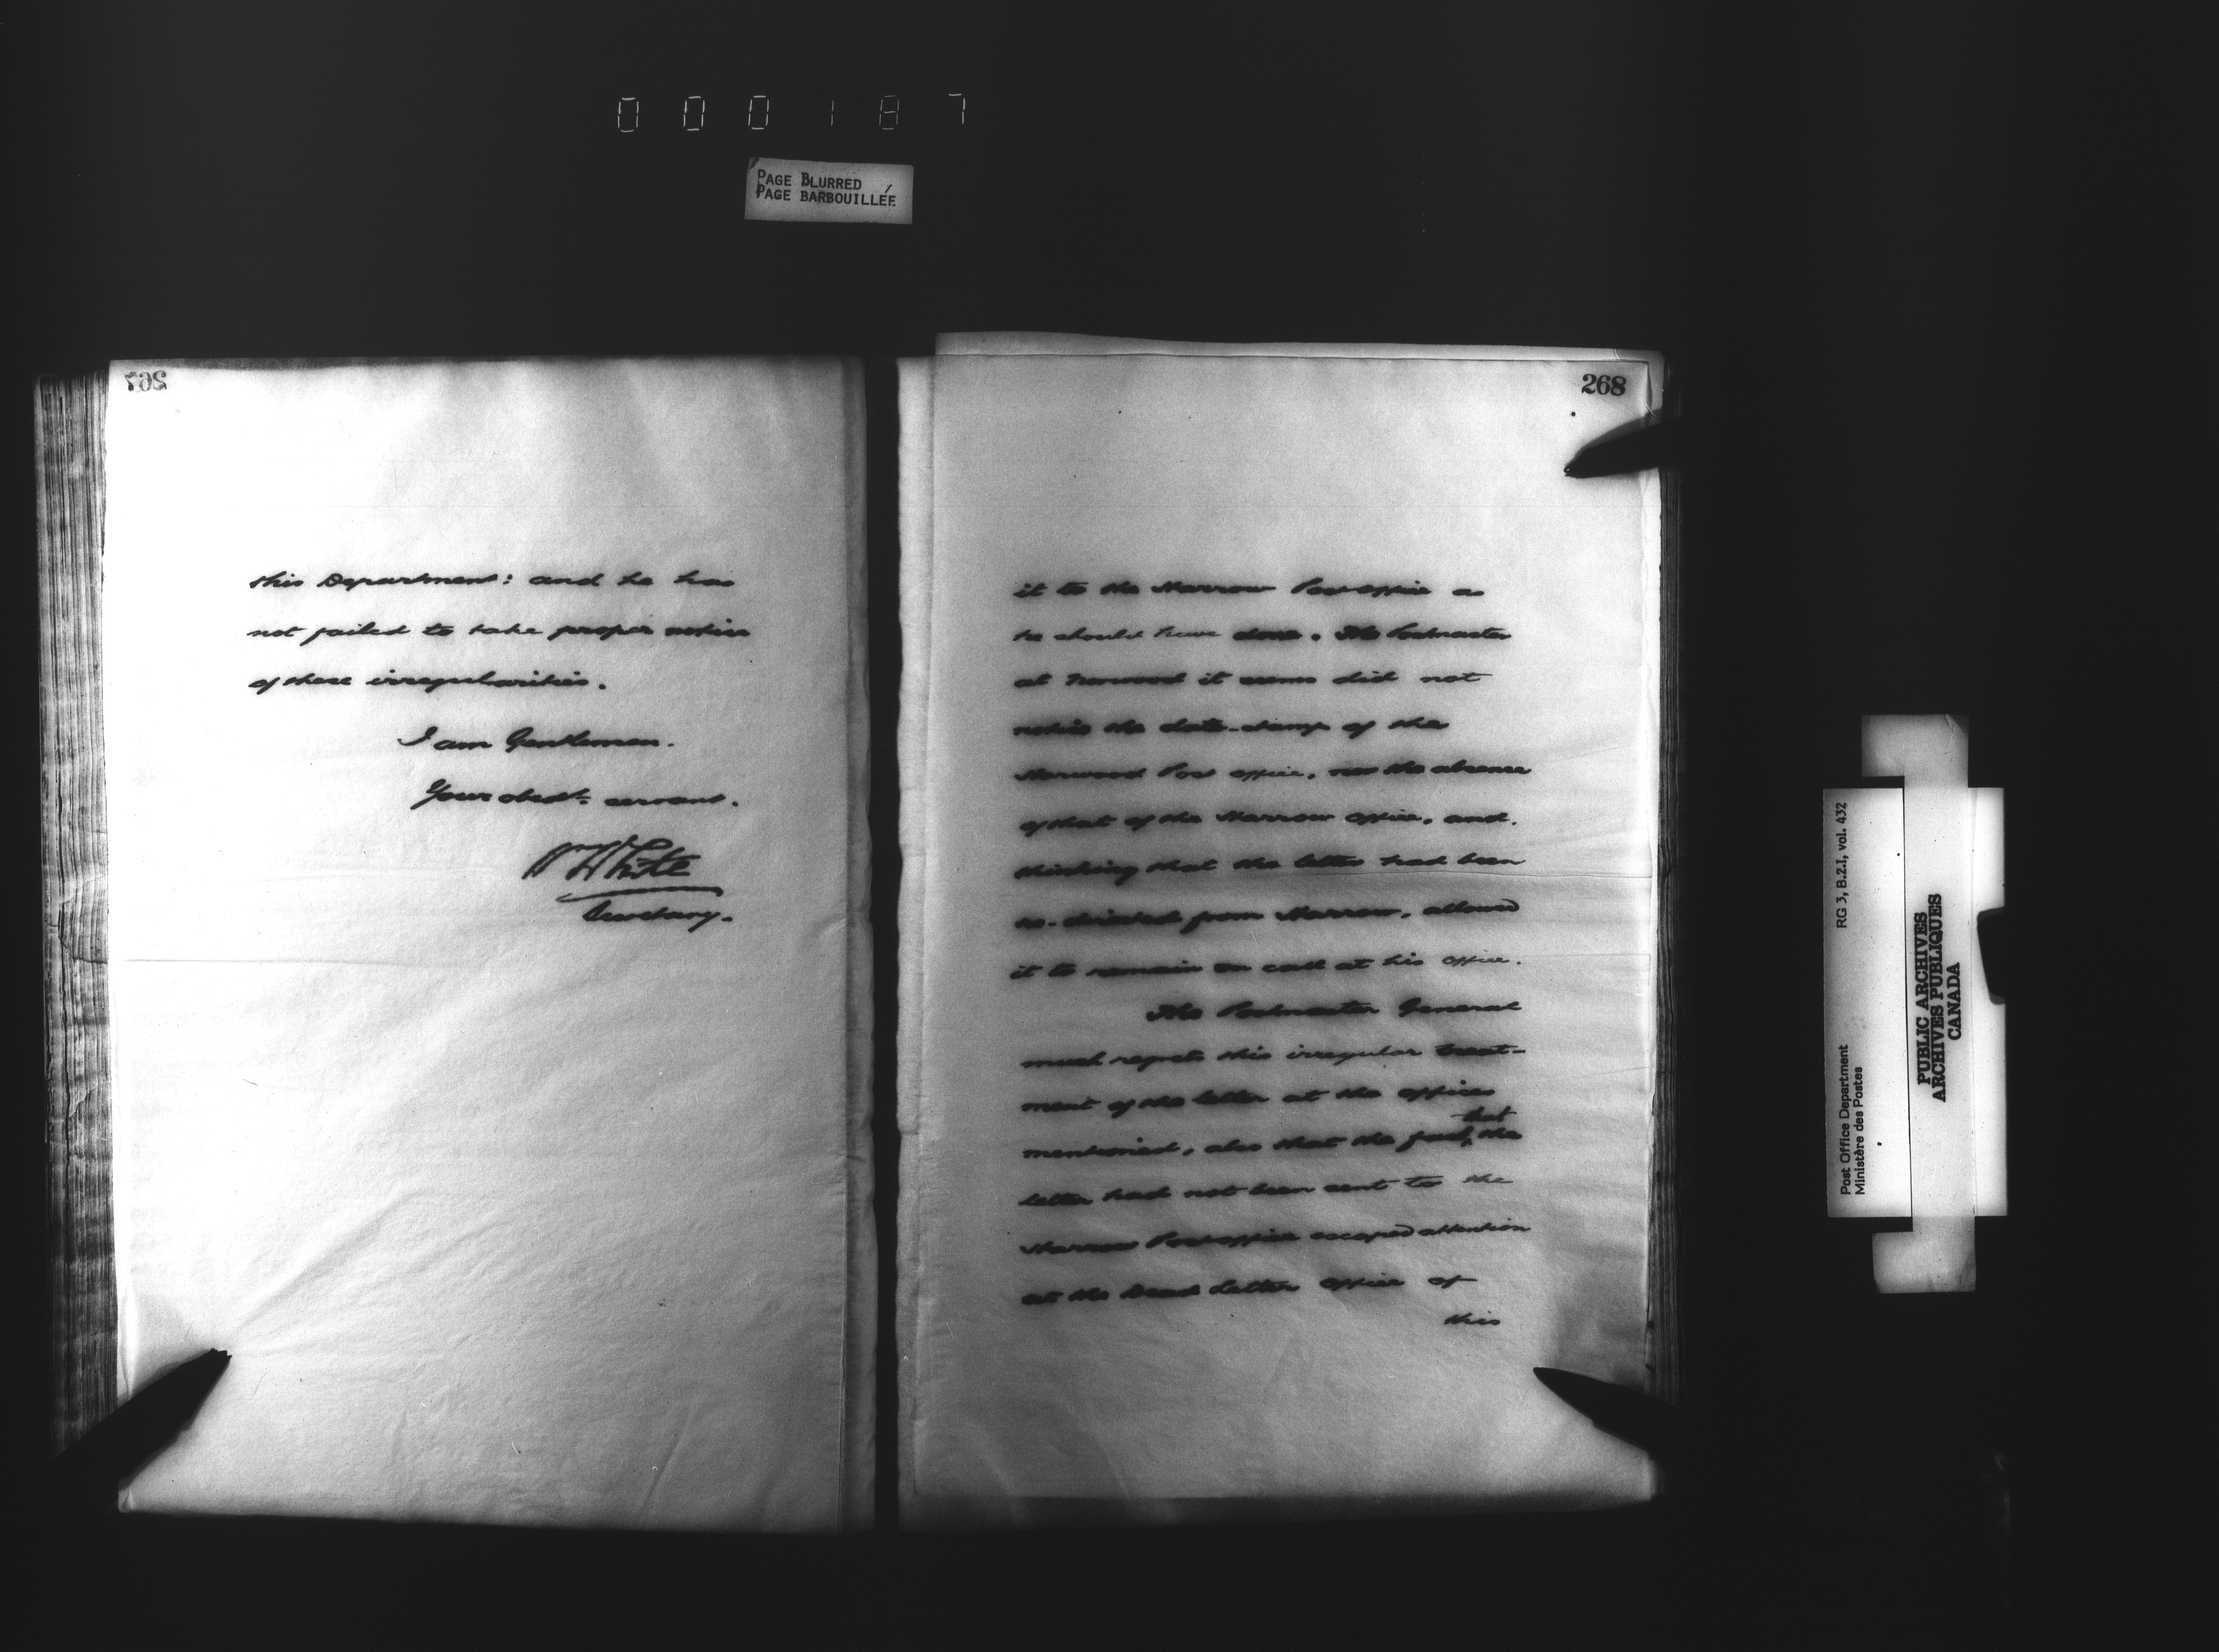 000187
PAGE BLURRED
PAGE BARBOUILLÉE
267
this Department: and he has
not failed to take proper notice
of these irregularities.
I am Gentlemen.
Your obedt. servant.
Wm White
Secretary.
268
it to the Marrow Post office as
he should have done. The Postmaster
at Norwood it seems did not
notice the date-stamp of the
Post office, nor the absence
of that of the Marrow office, and.
thinking that the letter had been
re-directed from Marrow, allowed
it to remain on call at his office.
The Postmaster General
much regrets this irregular treat-
ment of the letter at the offices
mentioned, also that the fact that the
letter had not been sent to the
Marrow Post office escaped attention
at the Dead Letter Office of
this
Post Office Department
Ministère des Postes
RG 3, B.2.1, vol. 432
PUBLIC ARCHIVES
ARCHIVES PUBLIQUES
CANADA